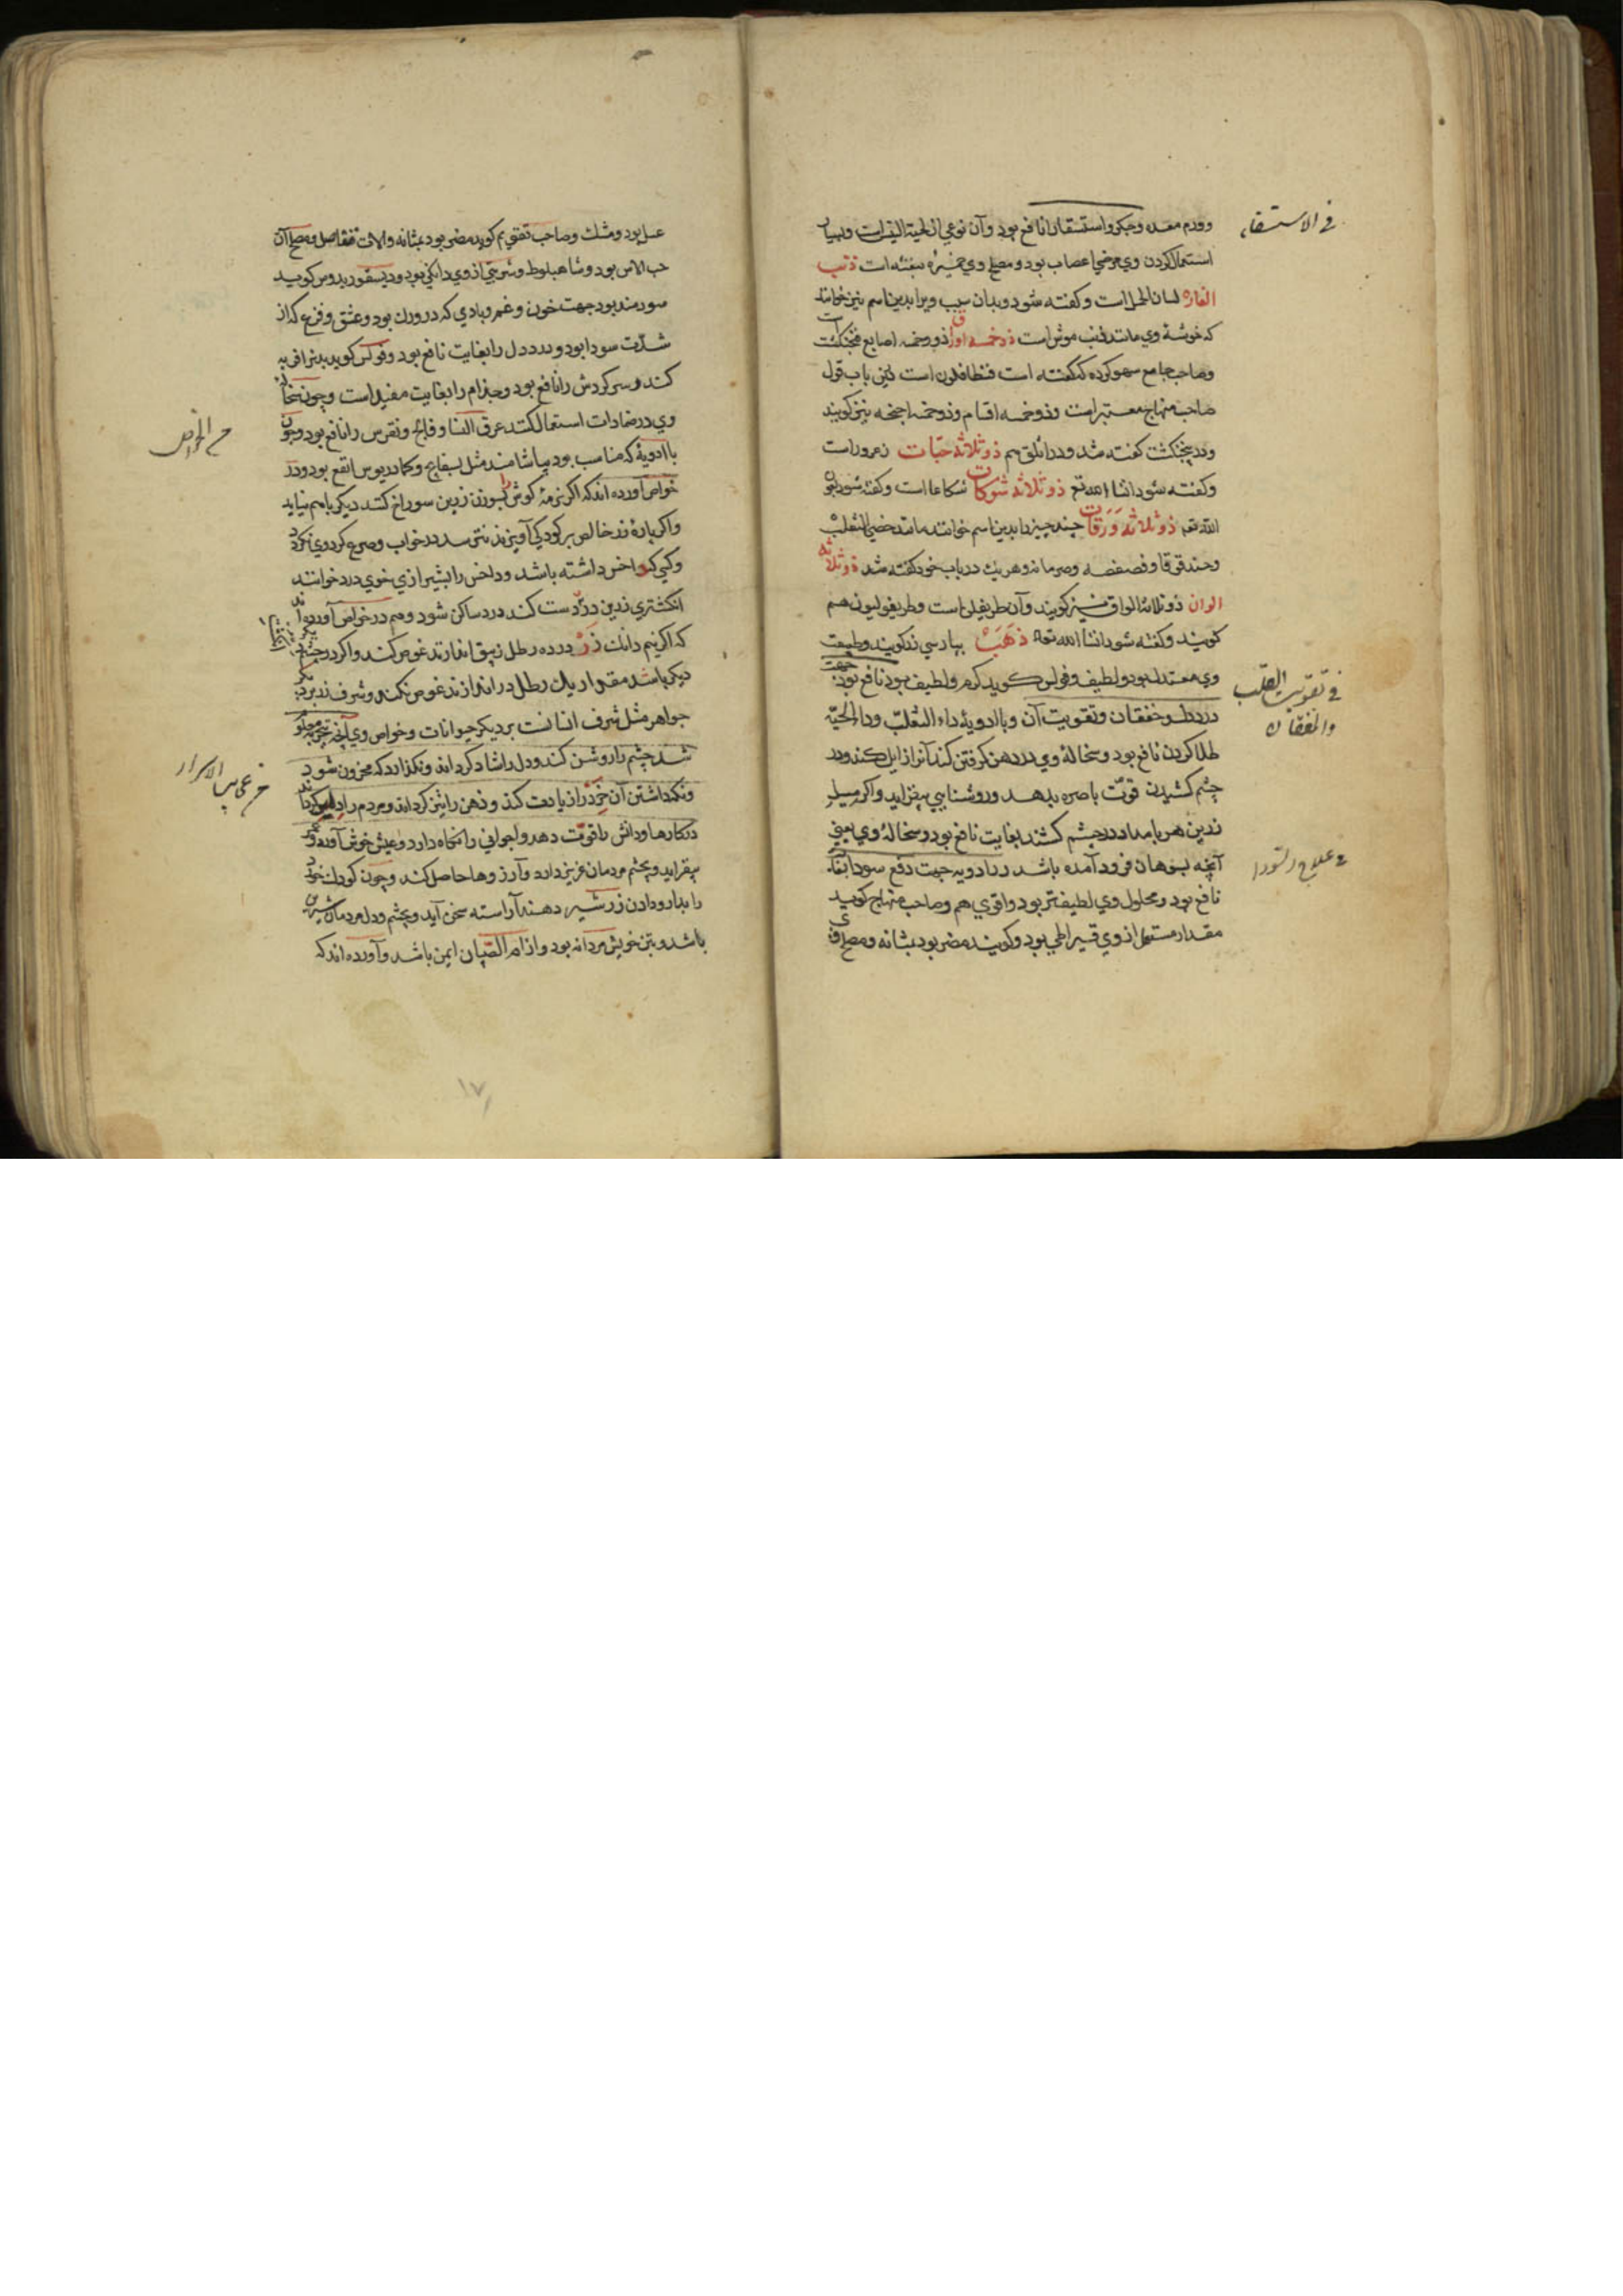 في الاستسقاء
وورم معده وجكر واستسقا را نافع بود وآن نوعی از لحیة التیس است وبسیار
استعمال کردن وی مرخی اعصاب بود ومصلح وی خمیره بنفشه است ذنب
الفاره لسان الحمل است وکفته شود وبدان سبب ویرا بدین اسم نیز خوانند
که خوشهٔ وی مانند ذنب موش است ذو خمسه اوراق ذو وخمسه اصابع فنجنکشت است
وصاحب جامع سهو کرده که کفته است فنطافلون است لیکن باب قول
صاحب منهاج معتبر است وذو خمسه اقسام وذو خمسه اجنحه نیز کویند
ودر پنجنکشت کفته شد ودر اثلق هم ذو ثلاثه حبات زعرور است
وکفته شود انشا الله تع ذو ثلاثه شوکات شکاعا است وکفته شود ان
الله تعه ذو ثلاثه ورقات چند چیز را بدین اسم خوانند مانند خصی الثعلب
وحندقوقا وفصفصه وصرمانه وهر یک در باب خود کفته شد ذو ثلاثه
الوان ذو ثلاثة الوان نیز کویند وآن طریفلن است وطریفولیون هم
کویند وکفته شود انشا الله تعه ذهب بپارسی زر کویند وطبیعت
في تقویت القلب
والخفقان
وی معتدل بود ولطیف وفولس کوید کرم ولطیف بود نافع بود جهت
درد دل وخفقان وتقویت آن وبا ادویهٔ داء الثعلب وداء الحیّة
طلا کردن نافع بود وسحالهٔ وی در دهن کرفتن کند آنرا زایل کند ودر
چشم کشیدن قوّت باصره بدهد وروشنایی بیفزاید واکر میل
زرین هر بامداد در چشم کشند بغایت نافع بود وسحالهٔ وی یعنی
في علاج السودا
آنچه بسوهان فرود آمده باشد در ادویه جهت دفع سودا بغایت
نافع بود ومحلول وی لطیفتر بود واقوی هم وصاحب منهاج کوید
مقدار مستعمل از وی قیراطی بود وکویند مضر بود بمثانه ومصلح وی
عسل بود ومشک وصاحب تقویم کوید مضر بود بمثانه وآلات مفاصل ومصلح آن
حب الاس بود وشاهبلوط وشربتی از وی دانکی بود ودیسقوریدوس کوید
سودمند بود جهت خون وغم وبادی که در ورک بود وعشق وفزع که از
شدّت سودا بود ودرد دل را بغایت نافع بود وفولس کوید
کند وسر کردش را نافع بود وجذام را بغایت مفید است وچون سحالهٔ
في الخواص
وی در ضمادات استعمال کنند عرق النسا وفالج ونقرس را نافع بود وچون
با ادویهٔ که مناسب بود بیاشامند مثل بسفایج وکمادریوس انفع بود ودر
خواص آورده اند که اکر نرمهٔ کوش را بسوزن زرین سوراخ کنند دیکر باهم نیاید
واکر پارهٔ زر خالص بر کودکی آویزند نترسد در خواب وصرع کرد وی نکردد
وکسی که داخس داشته باشد وداخس را بشیرازی خوی درد خوانند
انکشتری زرین در دست کند درد ساکن شود وهم در خواص آورده اند
که اکر نیم دانک زر در ده رطل زیبق اندازند غوص کند واکر در چیزهای
دیکر باشد مقدار یک رطل در اندازند غوص نکند وشرف زر بر دیکر
جواهر مثل شرف انسانست بر دیکر حیوانات وخواص وی آنچه تجربه معلوم
في عجایب الاسرار
شد چشم را روشن کند ودل را شاد کرداند ونکذارد که محزون شود
ونکه داشتن آن خرد را زیادت کند وذهن را تیز کرداند ومردم را دلیر کرداند
در کارها ودانش را قوّت دهد وجوانی را نکاه دارد وعیش خوش آورد وعمر
بیفزاید وبچشم مردمان عزیز دارد وآرزوها حاصل کند وچون کودک خرد
را بدارو دادن زر شیر دهند آراسته سخن آید وبچشم ودل مردمان شیرین
باشد وبتن خویش مردانه بود واز ام الصّبیان ایمن باشد وآورده اند که
۱۷